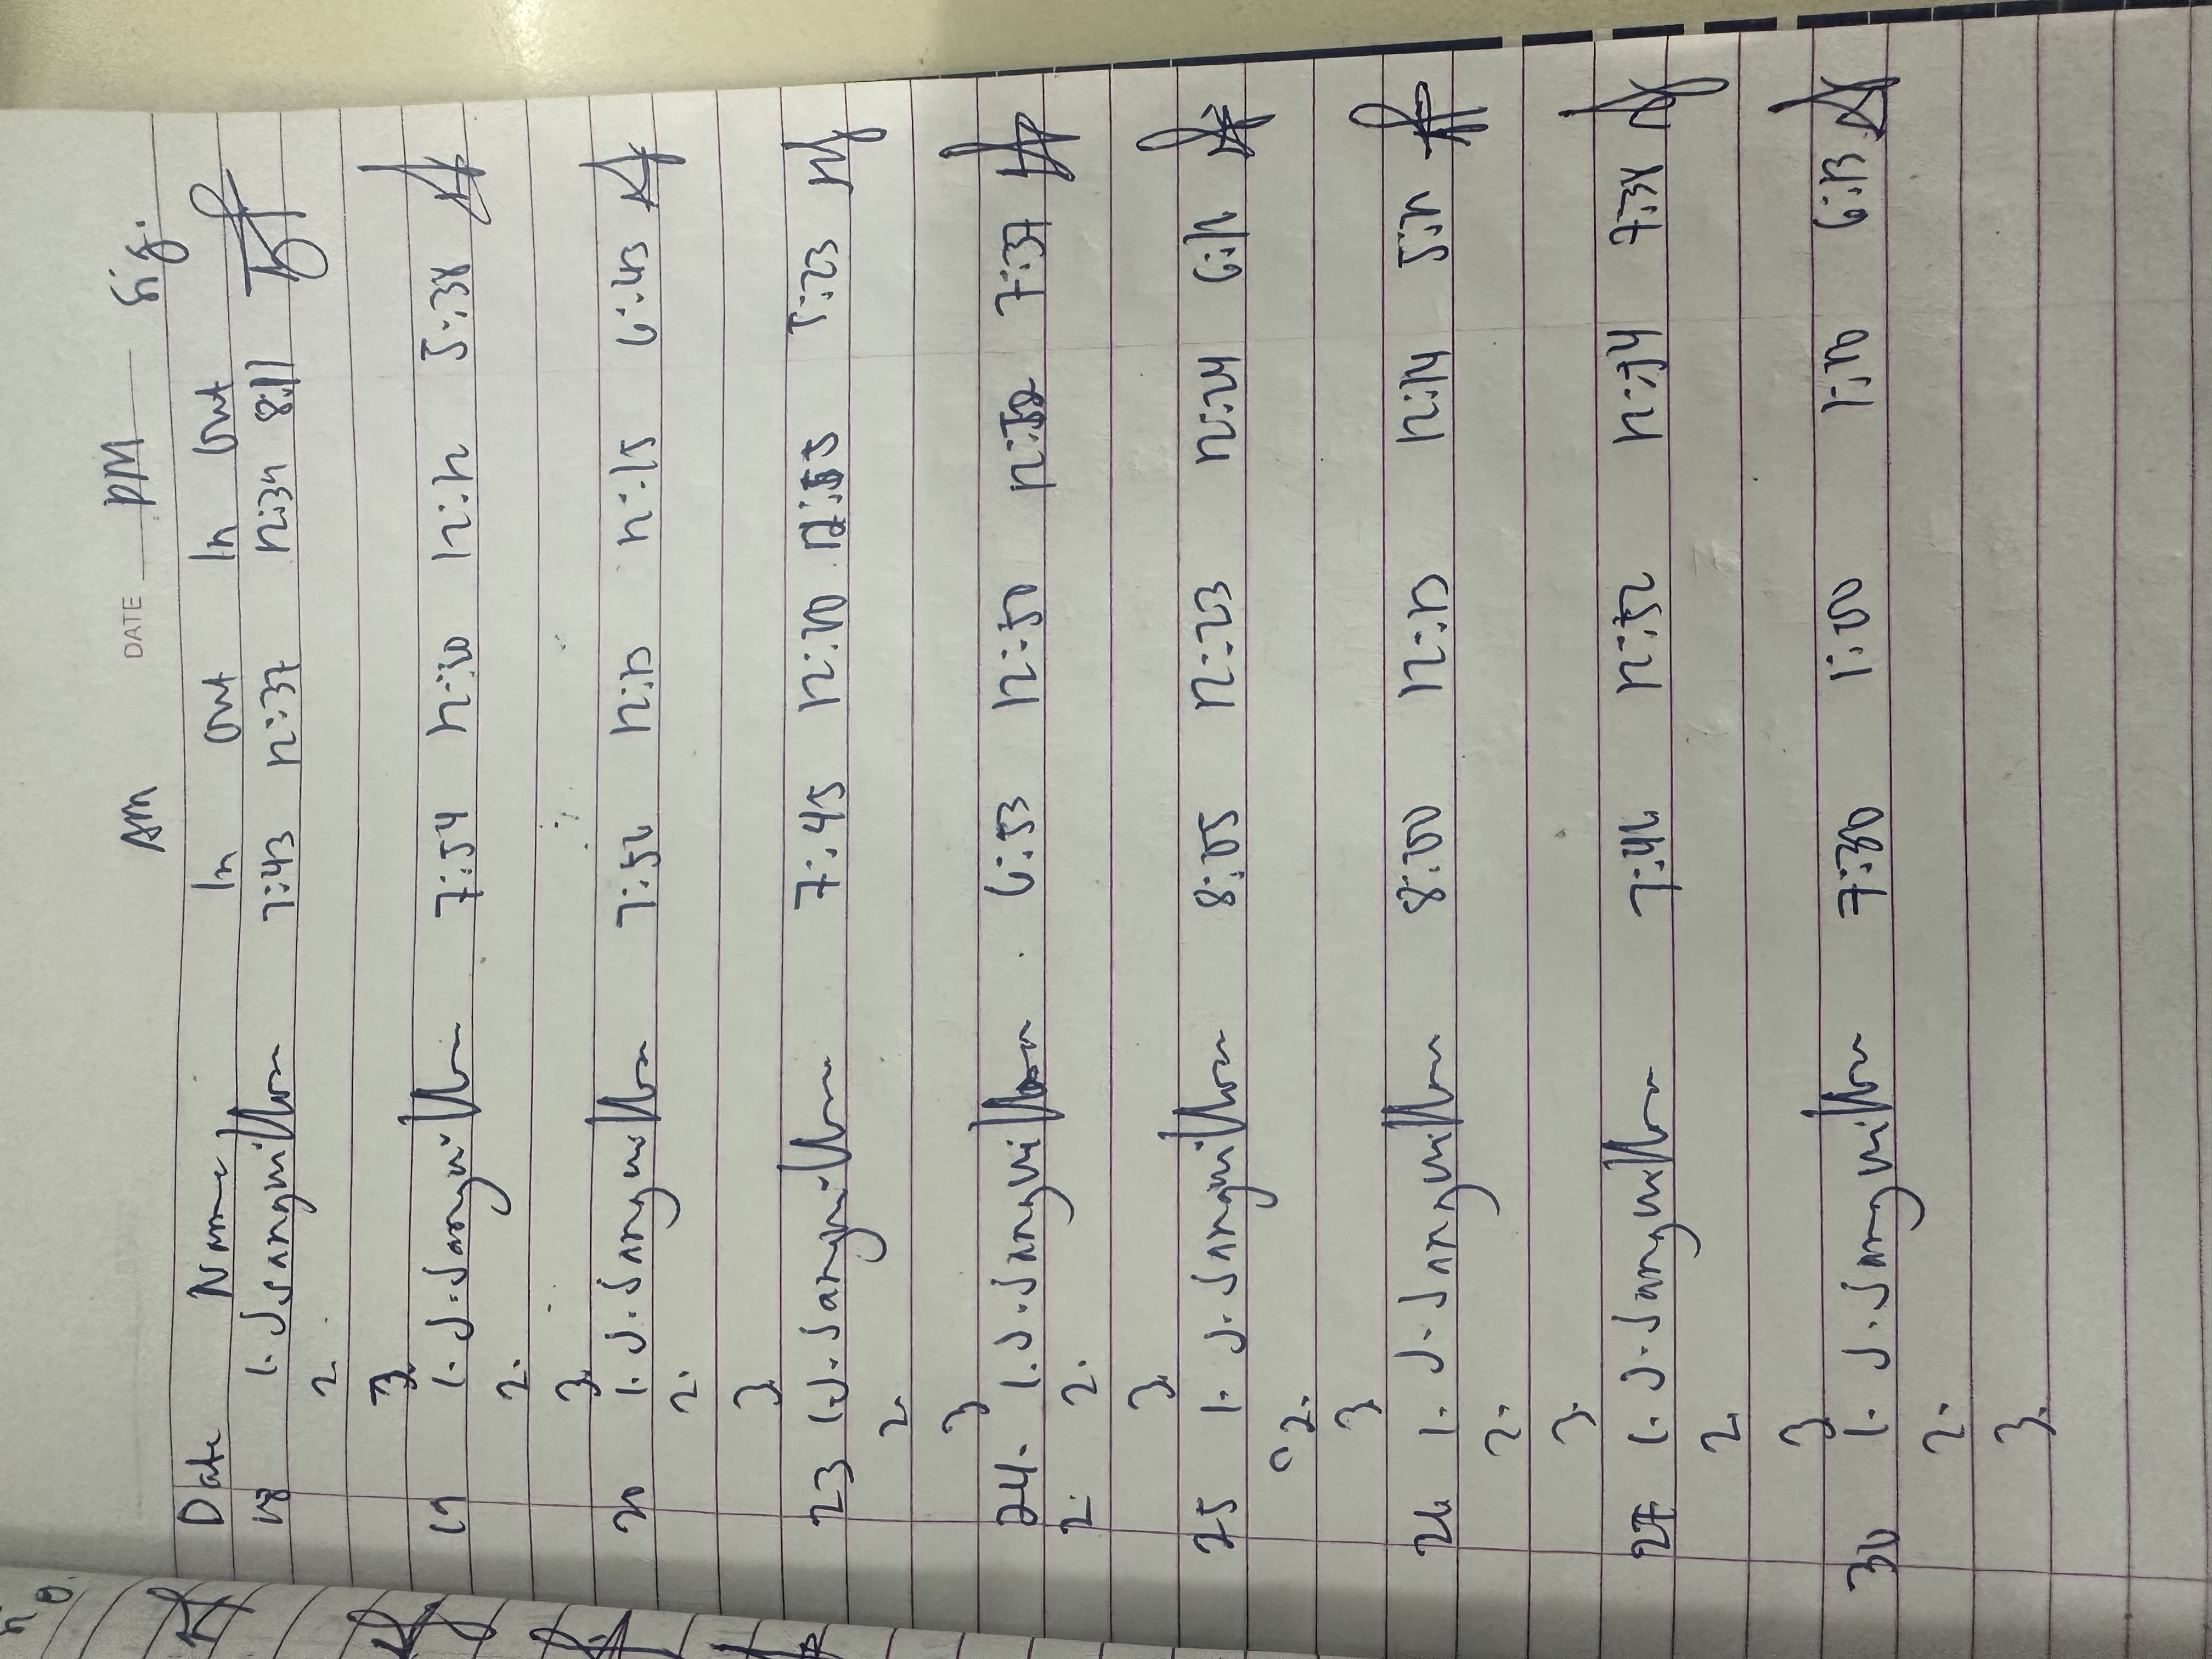 DATE
AM PM Sig.
Date Name In Out In Out
18 1. J. Sangvillon 7:43 12:37 12:34 8:11
2.
3.
19 1. J. Sangvillon 7:54 12:10 12:12 5:38
2.
3.
20 1. J. Sangvillon 7:56 12:13 12:15 6:43
2.
3.
23 1. J. Sangvillon 7:45 12:10 12:55 5:23
2.
3
24. 1. J. Sangvillon 6:53 12:50 12:52 7:37
2. 2.
3.
25 1. J. Sangvillon 8:05 12:23 12:24 6:11
2.
3
26 1. J. Sangvillon 8:00 12:13 12:14 5:21
2.
3.
27 1. J. Sangvillon 7:46 12:52 12:54 7:38
2
3
30 1. J. Sangvillon 7:30 1:00 1:10 6:13
2.
3.